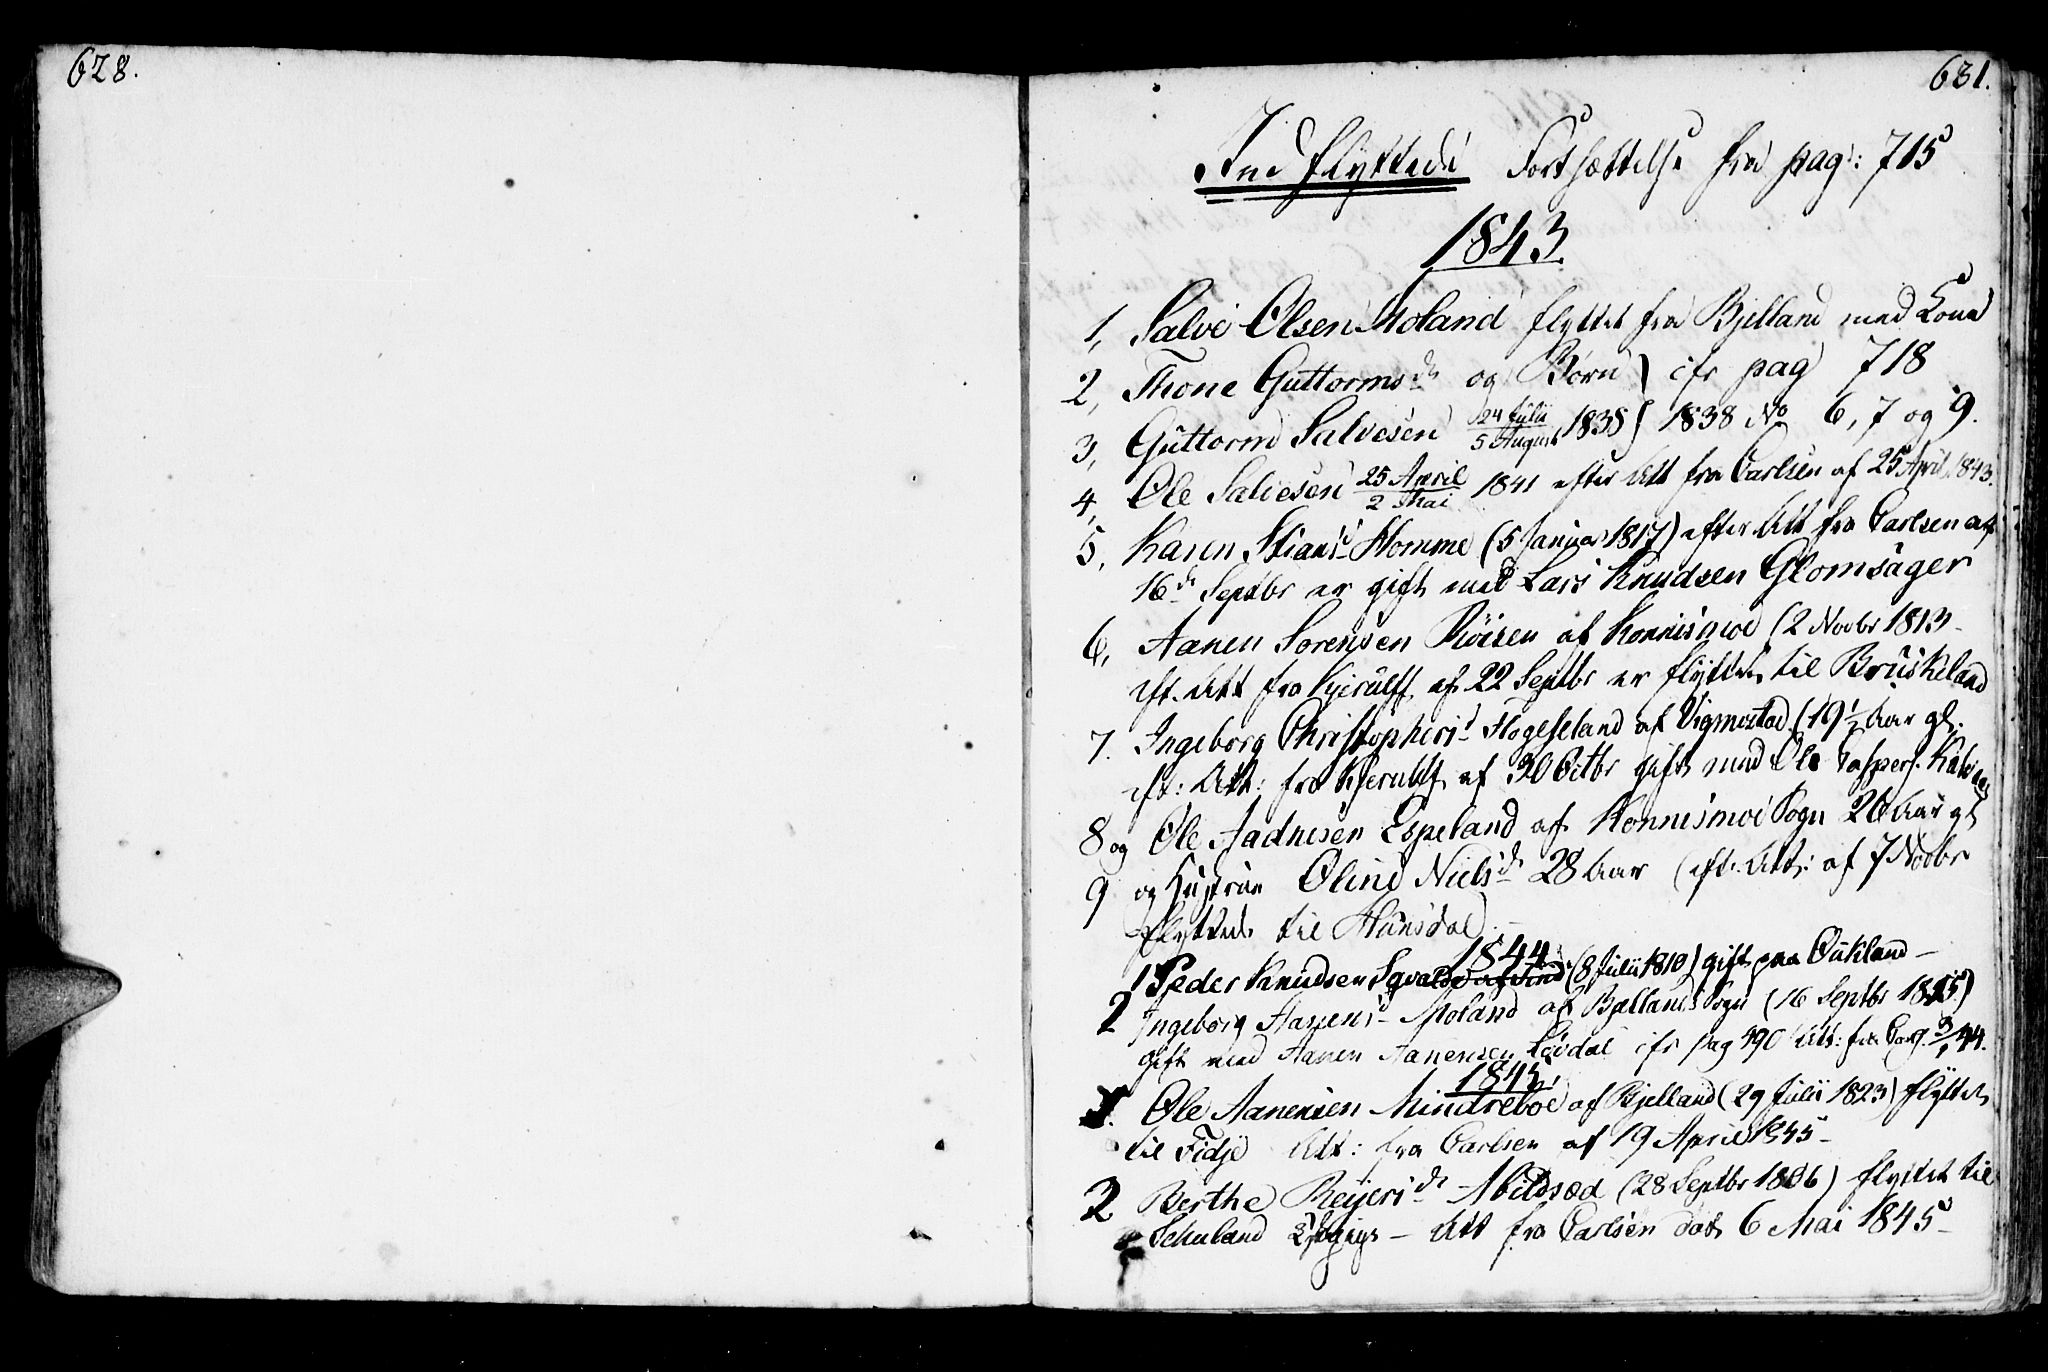 628.
631.
Indflyttede Fortsættelse fra pag: 715
1843.
1, Salve Olsen Moland flyttet fra Bjelland med Kone
2, Thone Guttormsdr og Børn } cfr pag 718
3, Guttorm Salvesen 24 Julii / 5 August 1838 } 1838 No 6, 7 og 9.
4, Ole Salvesen 25 April / 2 Mai 1841 efter Att fra Carlsen af 25 April 1843.
5, Karen Stiansd Homme (5 Januar 1817) efter Att fra Carlsen af
16de Septbr er gift med Lars Knudsen Glomsager
6, Aanen Sørensen Røisen af Konnismoe (2 Novbr 1813 -
eft. Att fra Kjerulff af 22 Septbr er flyttet til Bruskeland
7. Ingeborg Christophersd Hogeseland af Vigmostad (19 1/2 Aar gl.
eft: Att: fra Kjerulff af 30 Octbr gift med Ole Caspers.
8 og Ole Aadnesen Espeland af Konnismoe Sogn 26 Aar gl
9 og Hustrue Oline Nielsdr 28 Aar (eft: Att: af 7 Novbr
flyttede til Hunsdal) -
1844
1 Peder Knudsen (8 Julii 1810) gift paa Oukland -
2 Ingeborg Aanensd Moland af Bjellands Sogn (16 Septbr 1815)
gift med Aanen Aanensen Løvdal cfr pag 490 Att: fra Carls. 3/1 44.
1845,
1. Ole Aanensen Mindreboe af Bjelland (29 Julii 1823) flyttet
til Fidje Att: fra Carlsen af 19 April 1845 -
2 Berthe Reijersdr Abildsæd (28 Septbr 1806) flyttet til
Skuland - Att fra Carlsen dat 6 Mai 1845 -